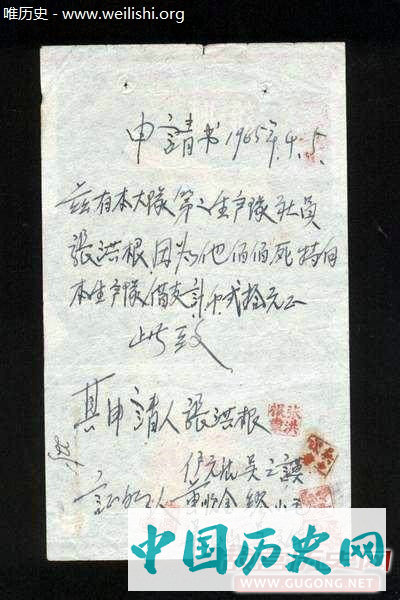 唯历史 - www.weilishi.org
申請书 1965年.4.5.
兹有本大隊第之生产隊社员
張洪根因为他伯伯死特向
本生产隊借支計币弍拾元正
此致
具申請人張洪根
張洪根章
証明人
中国历史网
WWW.GUGONG.NET